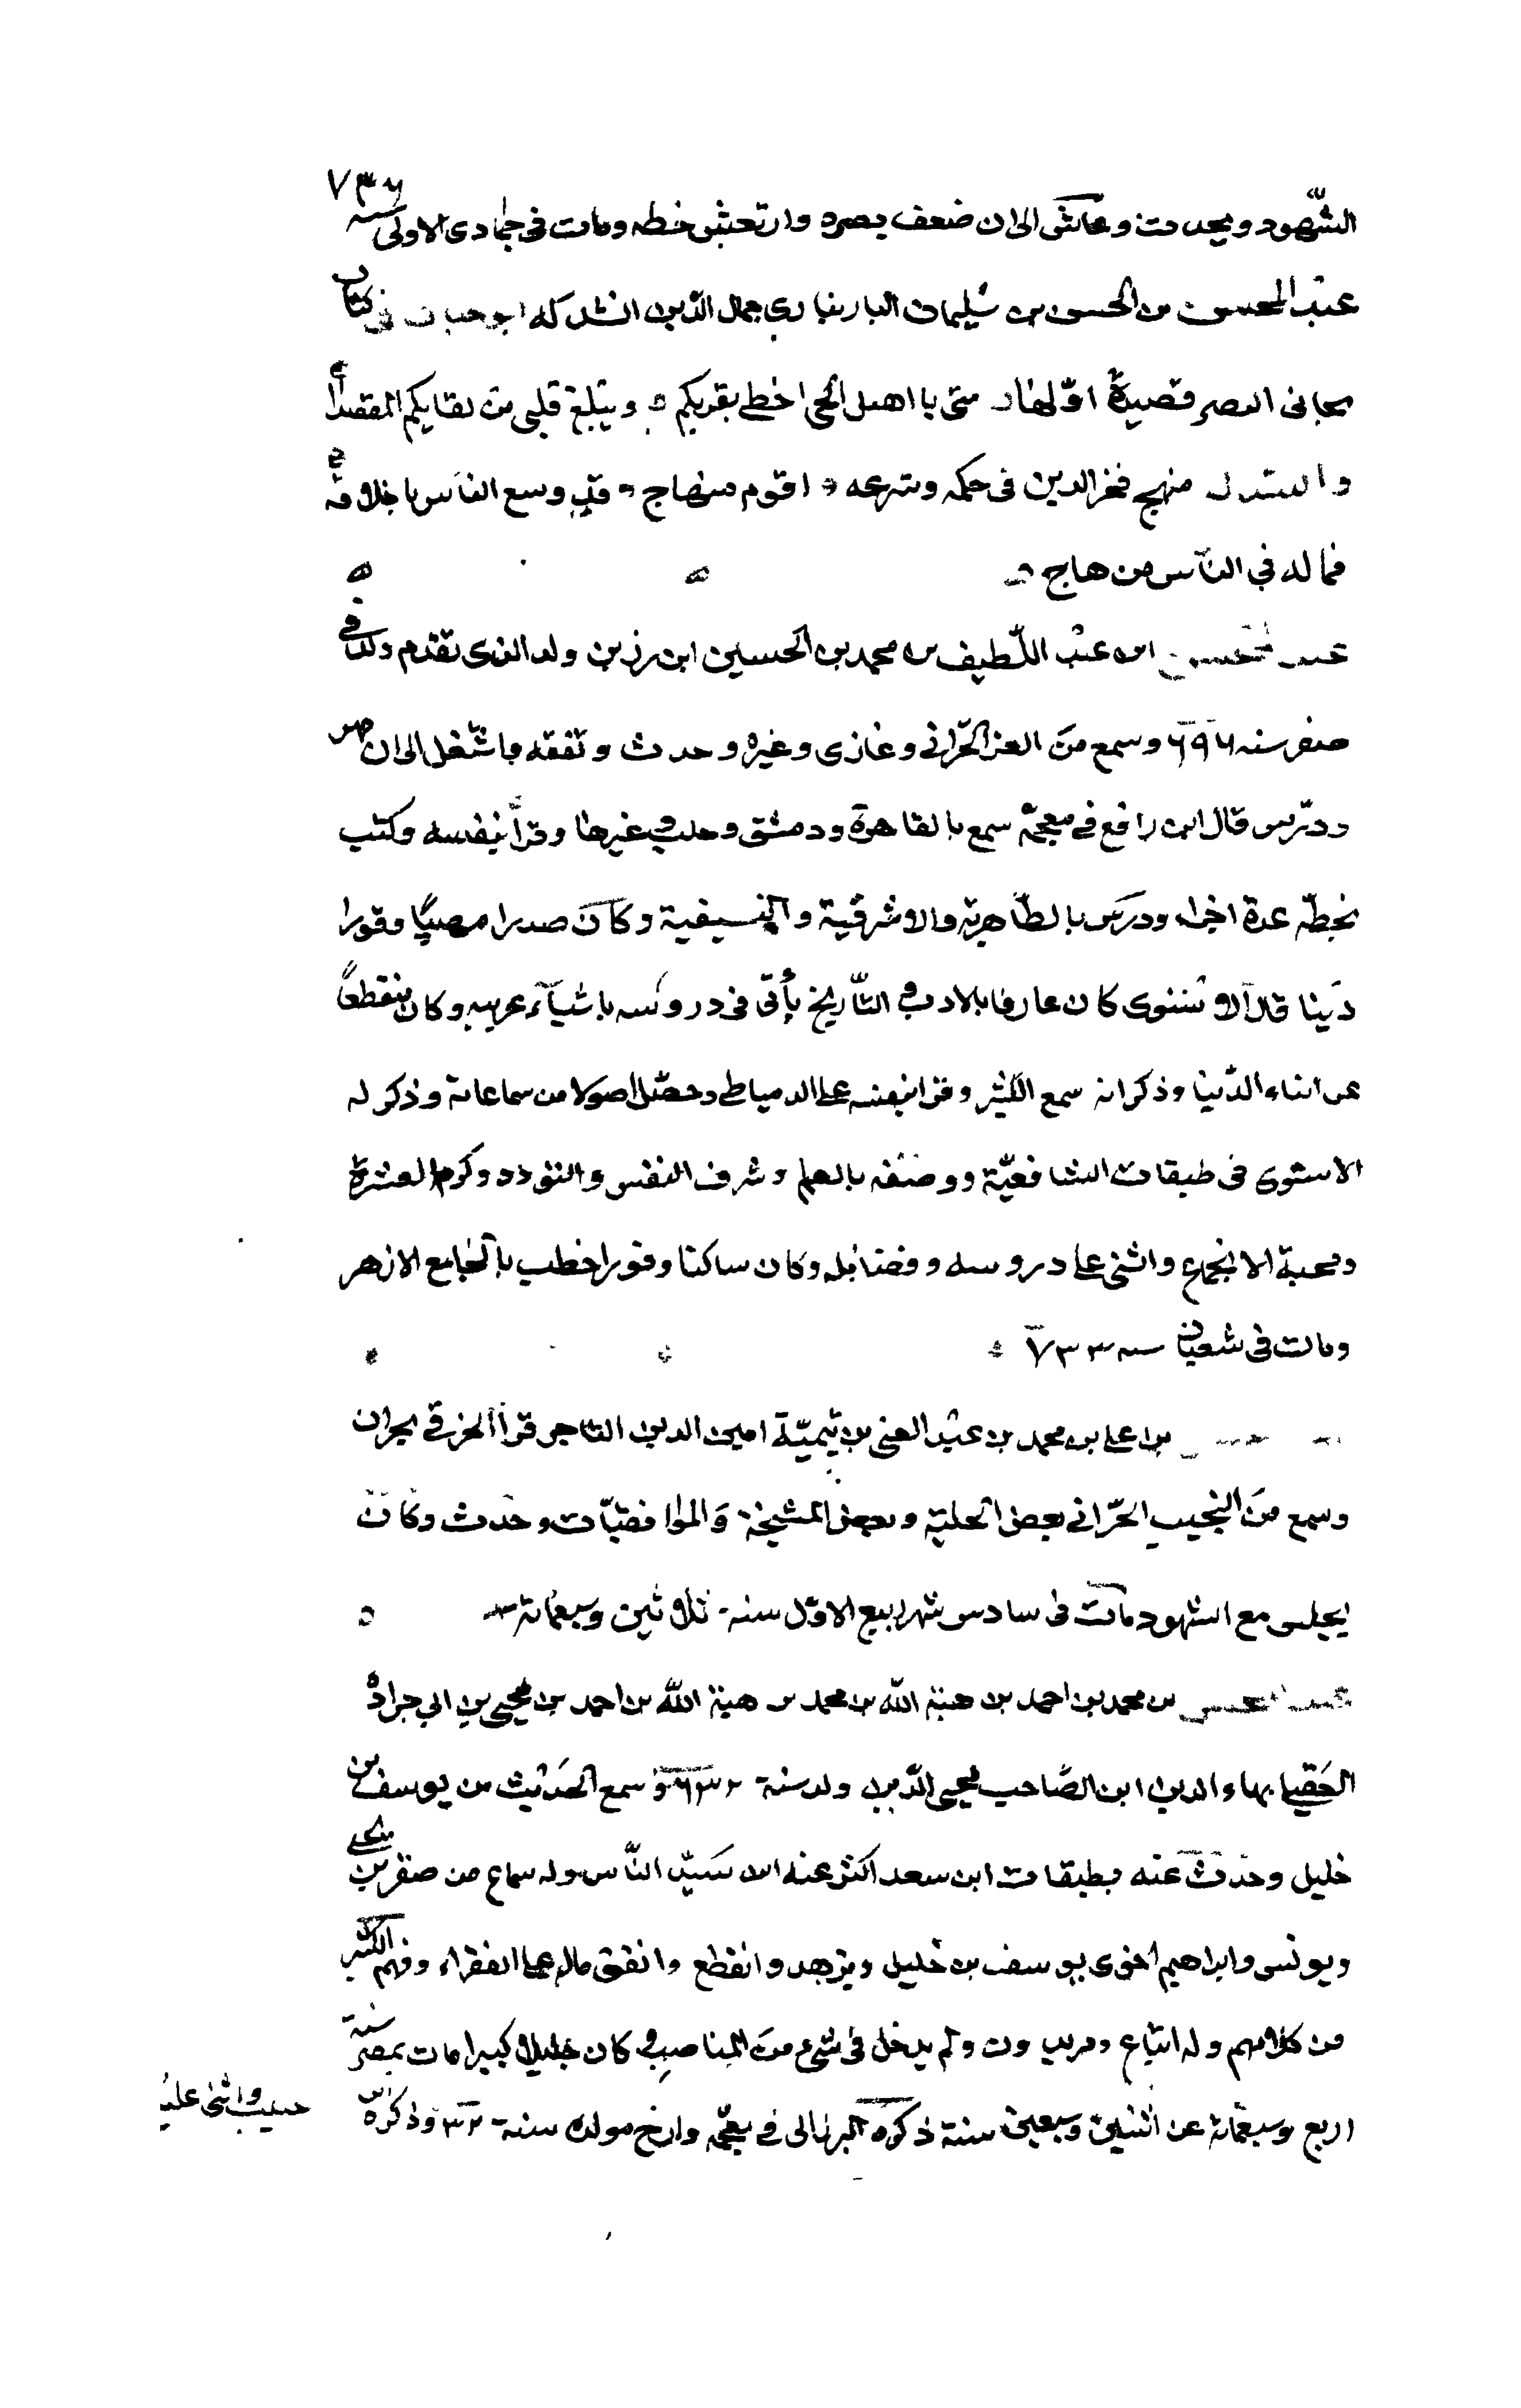 الشّهود ويحدث وعاش الى ان ضعف بصره وارتعش خطه ومات فى جمادى الاولى سنه ٧٣٦
عبد المحسن بن الحسن بن سليمان البارنبارى جمال الدّين انشد له ابو حيان فى كتاب
مجانى العصر قصيدةً اوّلها متى يا اهيل الحى احظى بقربكم ويبلغ قلبى من لقايكم المقصدا
وانشد له منهج فخر الدين فى حكمه وشرعه اقوم منهاج قد وسع الناس باخلاقه
فما له فى النّاس من هاج
عبد المحسن ابن عبد اللّطيف بن محمد بن الحسين ابن رزين ولد الذى تقدم ولد فى
صفر سنه ٦٩٦ وسمع من العز الحّرانى وغازى وغيره وحدث وتفقه واشتغل الى ان مهر
ودرّس قال ابن رافع فى معجمه سمع بالقاهرة ودمشق وحلب وغيرها وقرأ بنفسه وكتب
بخطّه عدة اجزاء ودرس بالظاهرية والاشرفية والسيفية وكان صدرا مهيبا وقورا
دينا قال الاسنوى كان عارفا بالادب والتّاريخ يأتى فى دروسه باشياء غريبه وكان منقطعاً
عن ابناء الدّنيا وذكر انه سمع الكثير وقرا بنفسه على الدمياطى وحصّل اصولا من سماعاته وذكر له
الاسنوى فى طبقات الشافعيّة ووصفه بالعلم وشرف النفس والتودد وكرم العشرة
ومحبة الانجماع واثنى على دروسه وفضايله وكان ساكنا وقورا خطب بالجامع الازهر
ومات فى شعبان سنه ٧٣٣
بن على بن محمد بن عبد الغنى بن تيميّة امين الدين التاجر قرأ الخرقى بحران
وسمع من النجيب الحّرانى بعض الحلية وبعض المشيخة والموافقيّات وحدث وكان
يجلس مع الشهود مات فى سادس شهر ربيع الاوّل سنة ثلاثين وسبعمائة
عبد المحسن بن محمد بن احمد بن هبة الله بن محمد بن هبة الله بن احمد بن يحيى بن ابى جرادة
العقيلى بهاء الدين ابن الصّاحب محيى الدّين ولد سنة ٦٣٢ وسمع الحديث من يوسف بن
خليل وحدث عنه بطبقات ابن سعد اكثر عنه ابن سيّد النّاس وله سماع من صقر بن يحيى
ويونس وابراهيم اخوى يوسف بن خليل وتزهد وانقطع وانفق ماله على الفقراء وفهم الكثير
من كلامهم وله اتباع ومريدون ولم يدخل فى شىء من المناصب وكان جليلا كبيرا مات بمصر سنة
اربع وسبعمائة عن اثنين وسبعين سنة ذكره البرزالى فى معجمه وارخ مولده سنة ٣٢ وذكره ابن
حبيب واثنى عليه